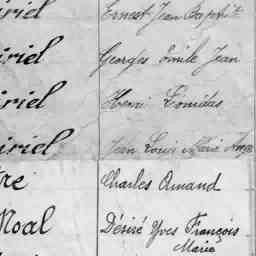 iriel Ernest Jean Baptist
iriel Georges Emile Jean
iriel Henri Léonidas
iriel Jean Louis Marie Ange
re Charles Amand
Noal Désiré Yves François
Marie